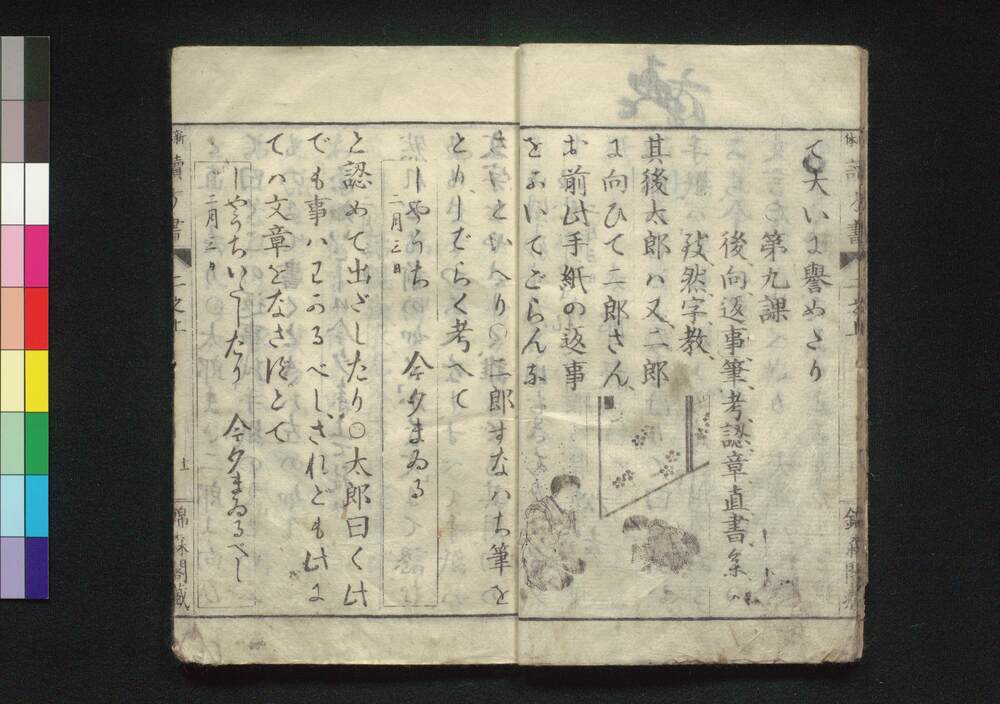 て大いに誉めたり
第九課
後、向、返、事、筆、考、認、章、直、書、
然、字、教、
其後太郎ハ又、二郎
に向ひて二郎さん、
お前此手紙の返事
をかいてごらんな
さいといへり〇二郎すなハち筆を
とり、しばらく考へて
しやうち 今夕まゐる
二月三日
と認めて出だしたり〇太郎曰く此
でも事ハわかるべし、されども此に
てハ文章をなさずとて
しやうちいたしたり 今夕まゐるべし
二月三日
讀方書
二之上
十一
錦森閣蔵